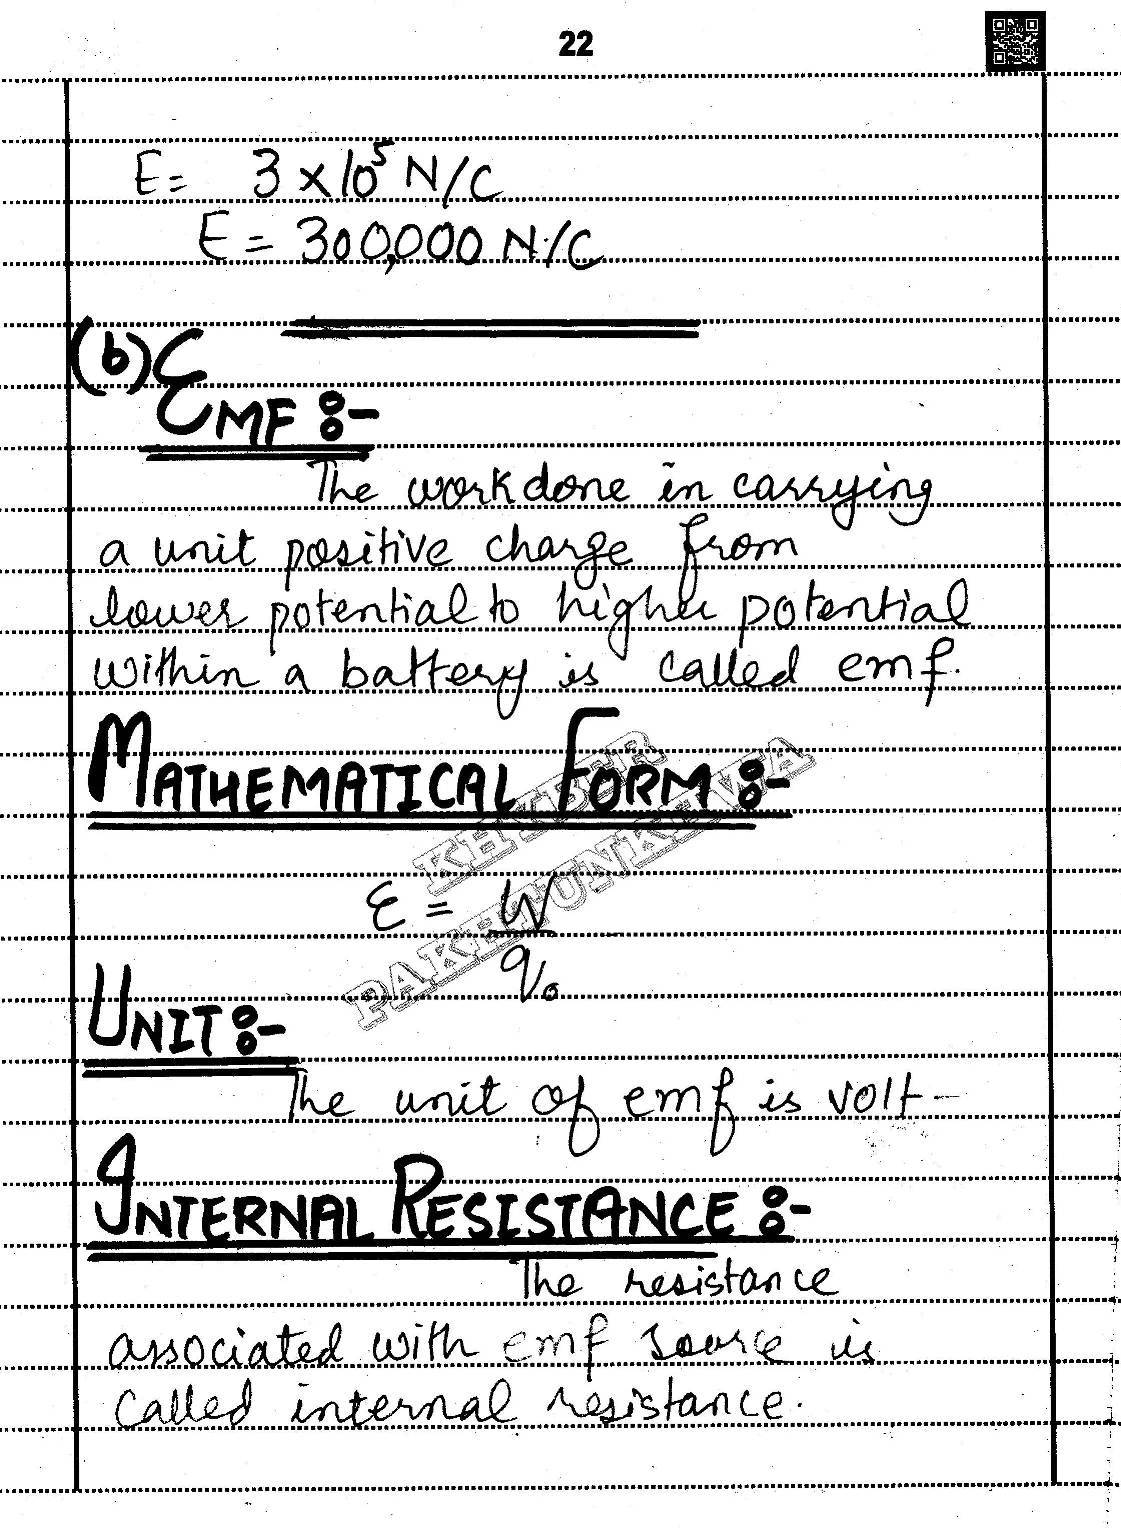 22
E= 3 × 10⁵ N/C
E = 300,000 N/C
(b) EMF :-
The workdone in carrying
a unit positive charge from
lower potential to higher potential
within a battery is called emf.
MATHEMATICAL FORM :-
KHYBER
PAKHTUNKHWA
ε = W
q₀
UNIT :-
The unit of emf is volt -
INTERNAL RESISTANCE :-
The resistance
associated with emf source is
called internal resistance.